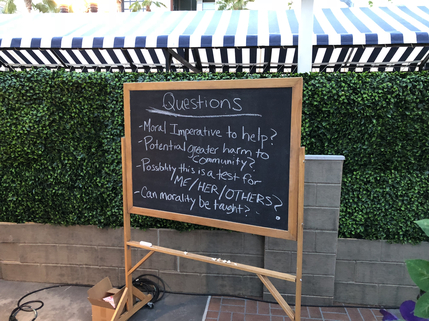 Questions
- Moral Imperative to help?
- Potential greater harm to
community?
- Possibility this is a test for
ME/HER/OTHERS?
- Can morality be taught?